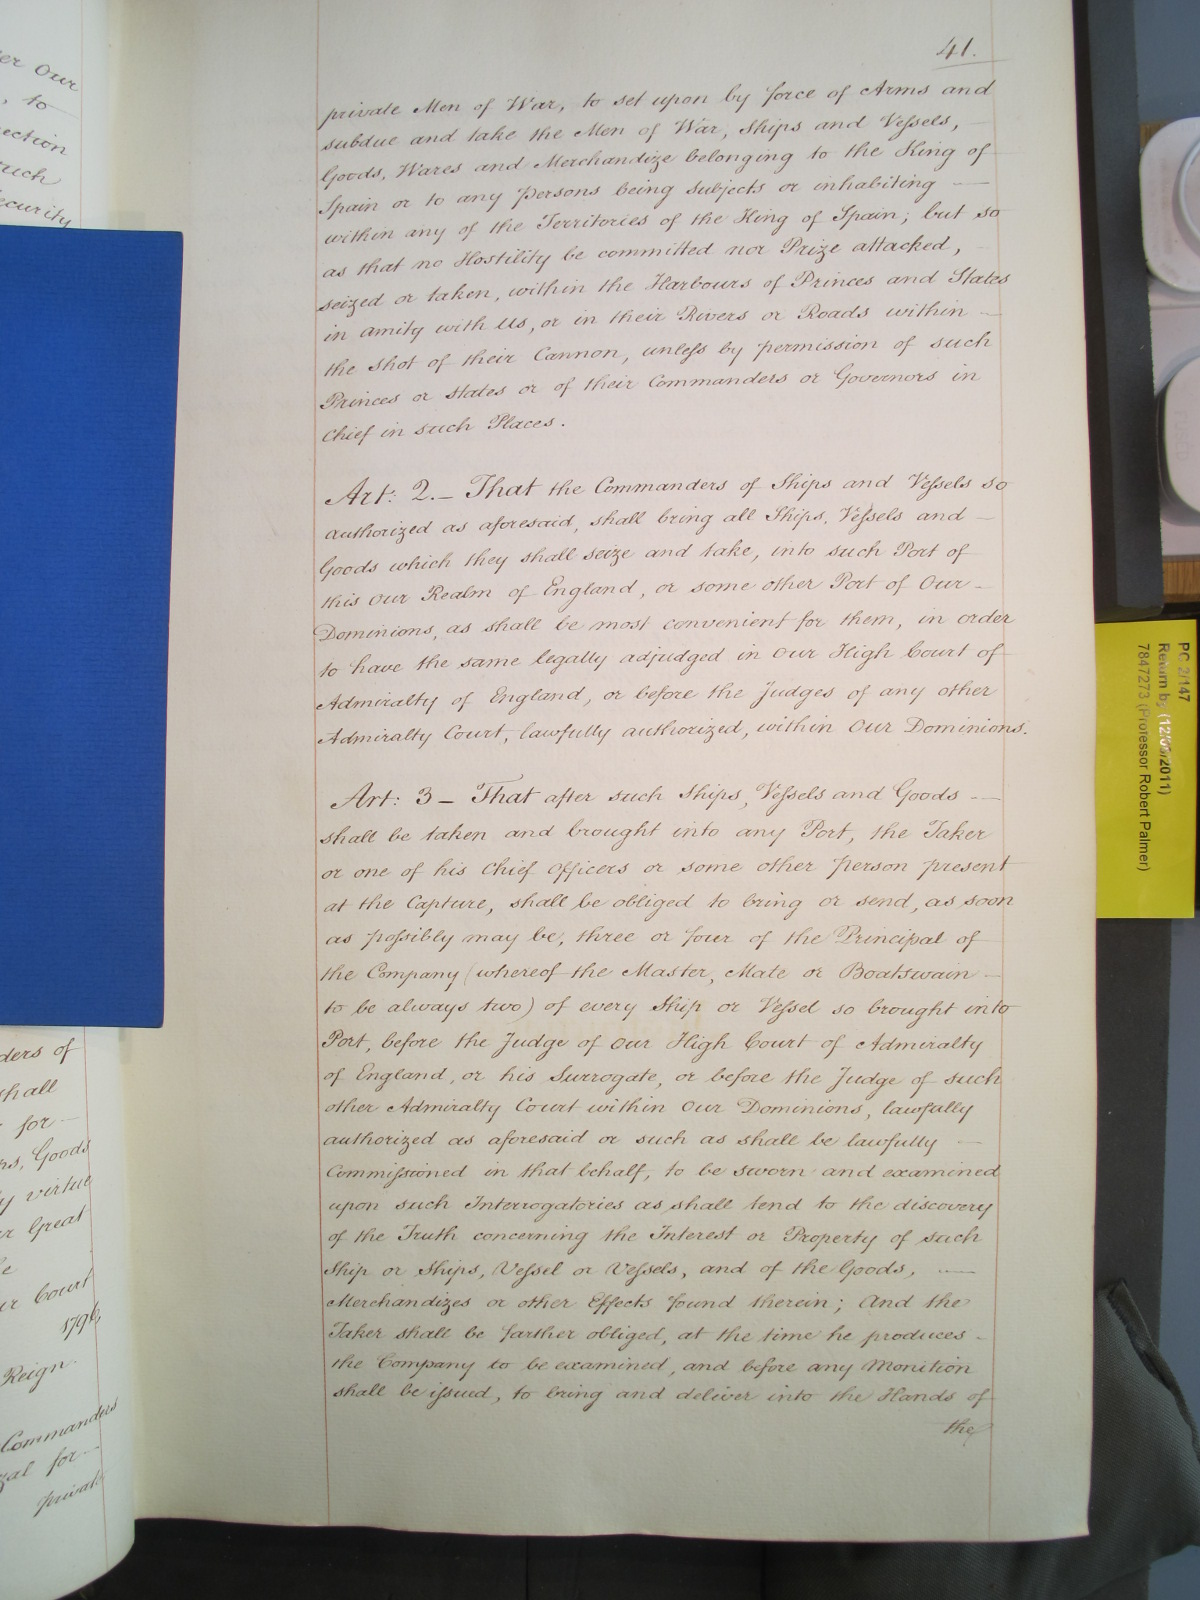 er Our
, to
ection
such
ecurity
ders of
shall
for —
ns, Goods
y virtue
er Great
e
ir Court
1796,
Reign.
Commanders
al for —
private
41.
private Men of War, to set upon by force of Arms and
subdue and take the Men of War, Ships and Vessels, —
Goods, Wares and Merchandize belonging to the King of
Spain or to any Persons being Subjects or inhabiting —
within any of the Territories of the King of Spain; but so
as that no Hostility be committed nor Prize attacked,
seized or taken, within the Harbours of Princes and States
in amity with Us, or in their Rivers or Roads within —
the shot of their Cannon, unless by permission of such
Princes or States or of their Commanders or Governors in
Chief in such Places.
Art: 2. — That the Commanders of Ships and Vessels so
authorized as aforesaid, shall bring all Ships, Vessels and —
Goods which they shall seize and take, into such Port of
this Our Realm of England, or some other Port of Our —
Dominions, as shall be most convenient for them, in order
to have the same legally adjudged in Our High Court of
Admiralty of England, or before the Judges of any other
Admiralty Court, lawfully authorized, within Our Dominions.
Art: 3 — That after such Ships, Vessels and Goods —
shall be taken and brought into any Port, the Taker
or one of his Chief Officers or some other person present
at the Capture, shall be obliged to bring or send, as soon
as possibly may be, three or four of the Principal of
the Company (whereof the Master, Mate or Boatswain —
to be always two) of every Ship or Vessel so brought into
Port, before the Judge of Our High Court of Admiralty
of England, or his Surrogate, or before the Judge of such
other Admiralty Court within Our Dominions, lawfully
authorized as aforesaid or such as shall be lawfully —
Commissioned in that behalf, to be sworn and examined
upon such Interrogatories as shall tend to the discovery
of the Truth concerning the Interest or Property of such
Ship or Ships, Vessel or Vessels, and of the Goods, —
Merchandizes or other Effects found therein; And the
Taker shall be farther obliged, at the time he produces —
the Company to be examined, and before any Monition
shall be issued, to bring and deliver into the Hands of
the
PC 2/147
Return by (12/05/2011)
7847273 (Professor Robert Palmer)